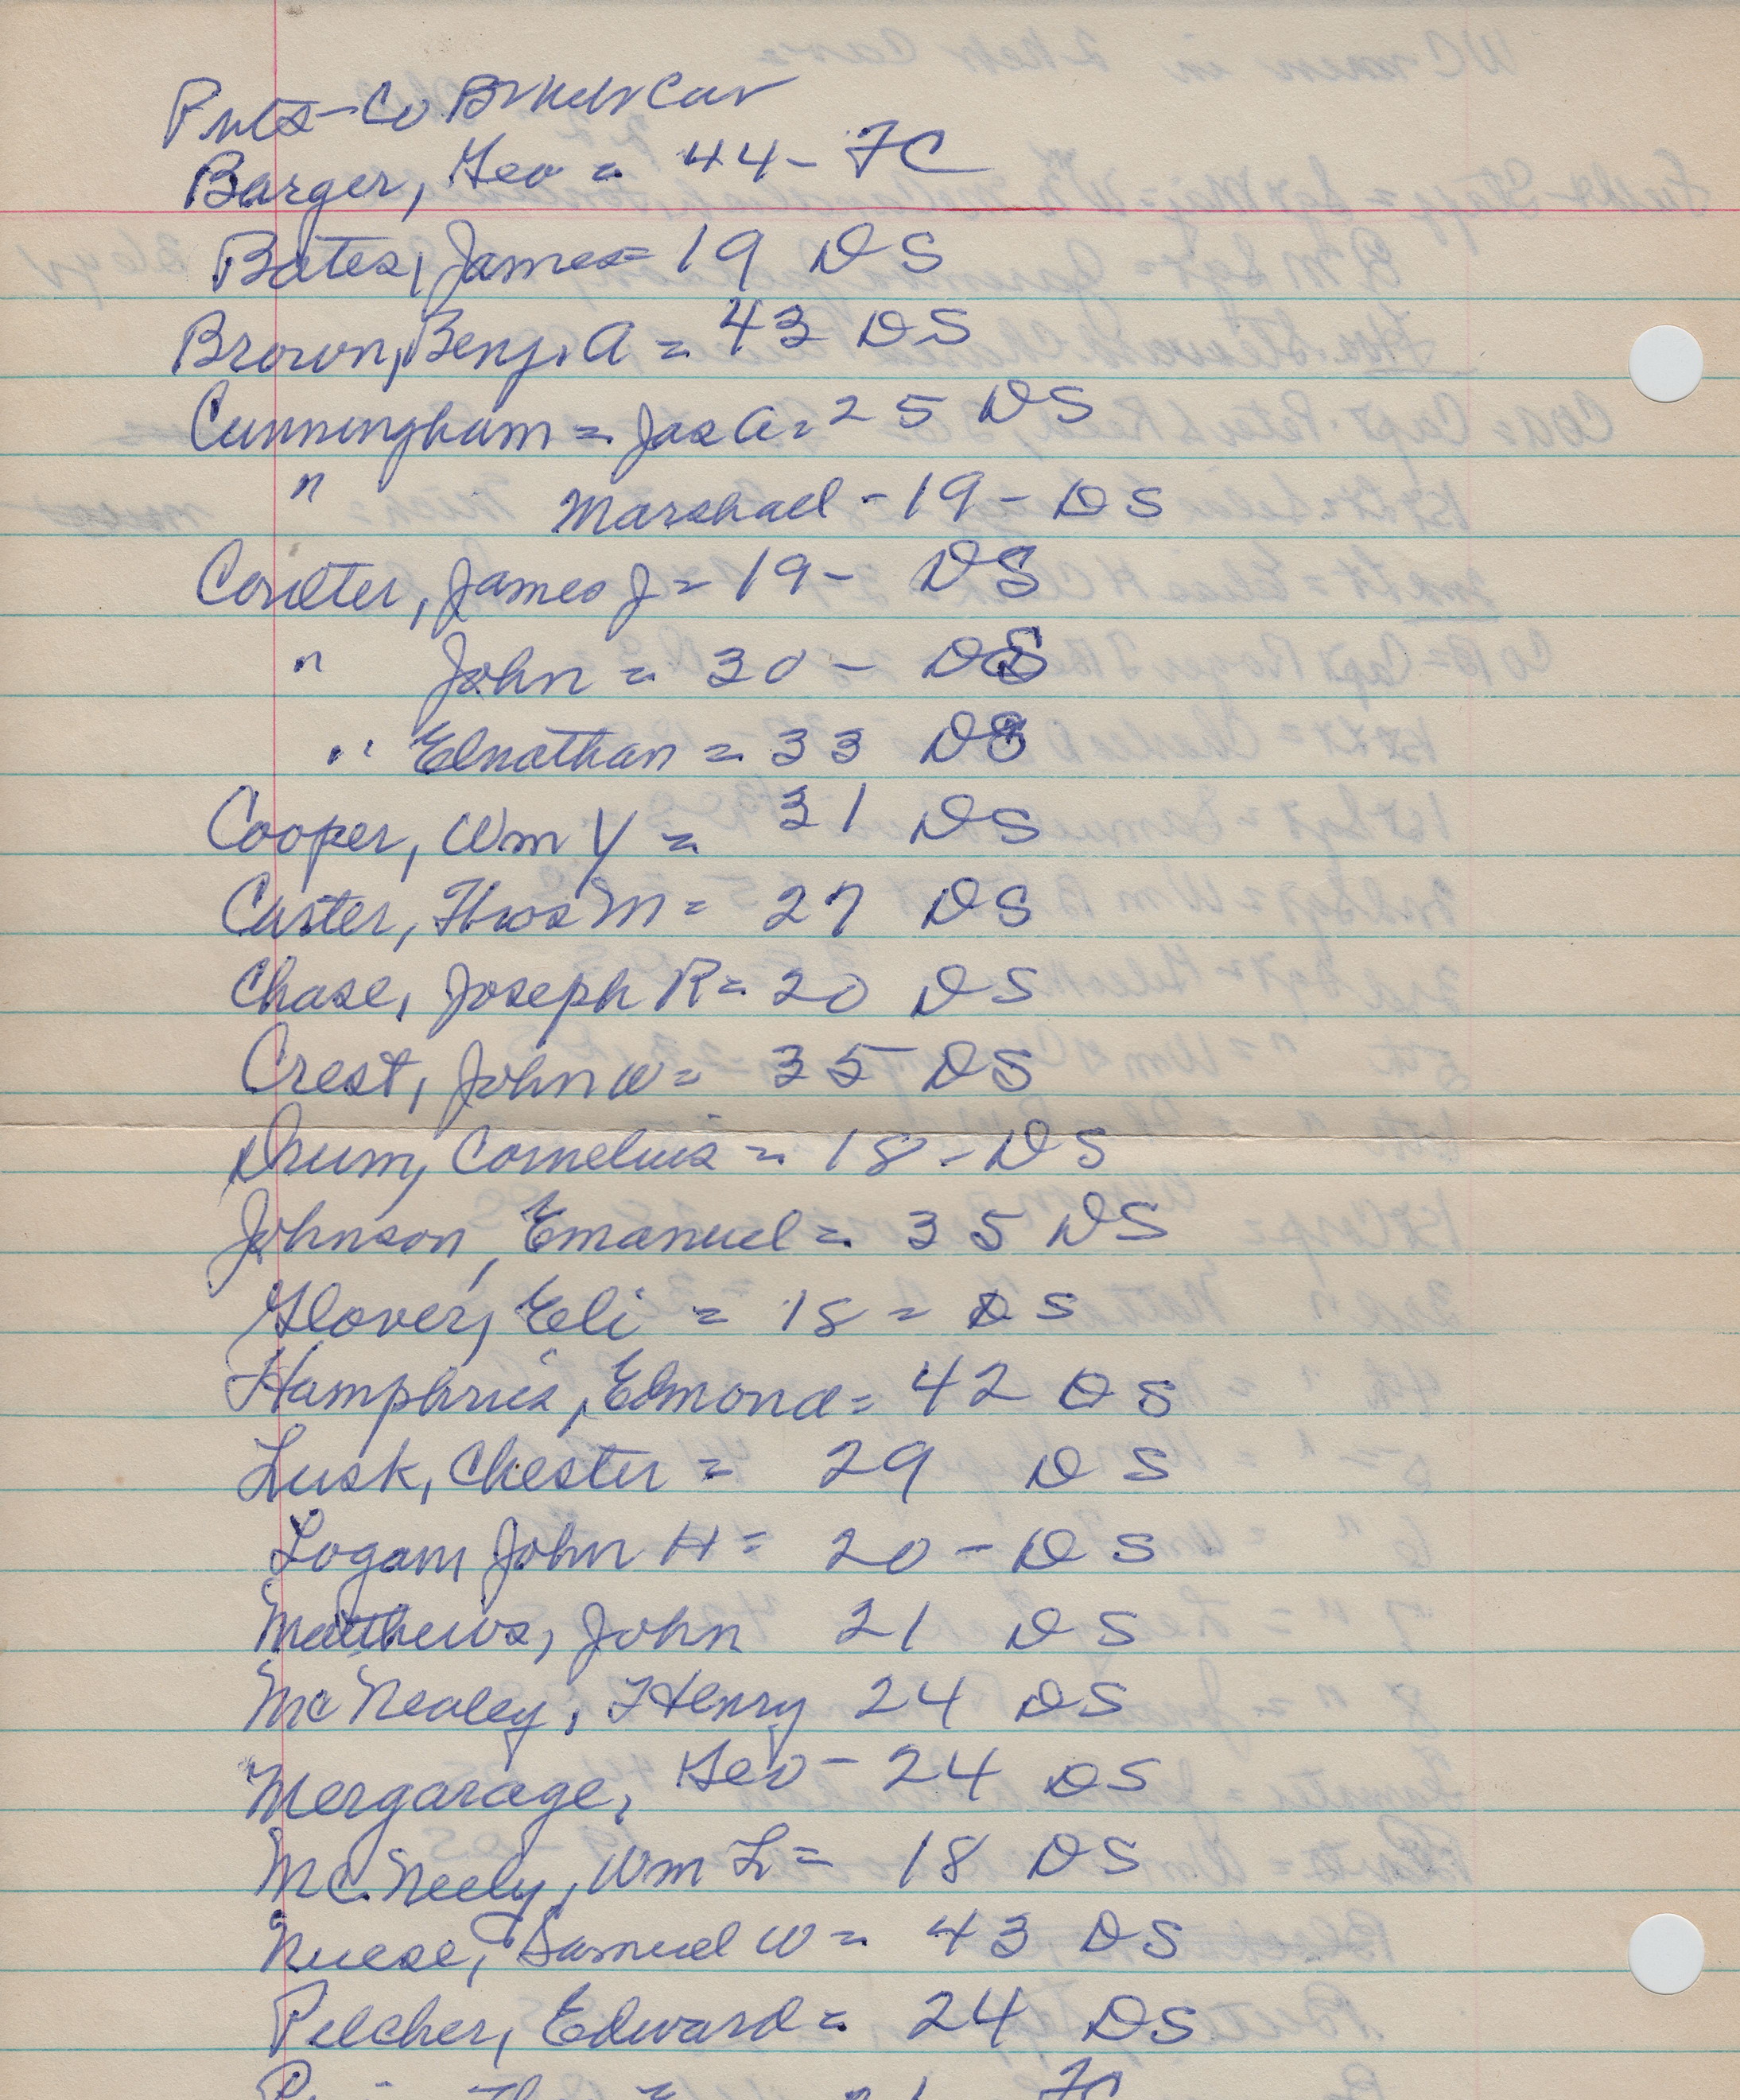 Pvts-Co B
Barger, Geo = 44- FC
Bates, James = 19 DS
Brown, Benj. A = 43 DS
Cunningham = Jas A = 25 DS
" Marshall - 19 - DS
Coulter, James J = 19 - DS
" John = 30 - DS
" Elnathan = 33 DS
Cooper, Wm Y = 31 DS
Custer, Thos M = 27 DS
Chase, Joseph R = 20 DS
Crest, John W = 35 DS
Drum, Cornelius = 18 - DS
Johnson, Emanuel = 35 DS
Glover, Eli = 18 = DS
Humphries, Edmond = 42 DS
Lusk, Chester = 29 DS
Logan, John H = 20 - DS
Matthews, John 21 DS
McNealey, Henry 24 DS
Mergarage, Geo - 24 DS
McNeely, Wm L = 18 DS
Nuese, Samuel W = 43 DS
Pilcher, Edward = 24 DS